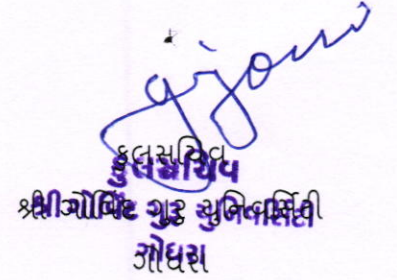 કુલસચિવ
શ્રી ગોવિંદ ગુરુ યુનિવર્સિટી
ગોધરા